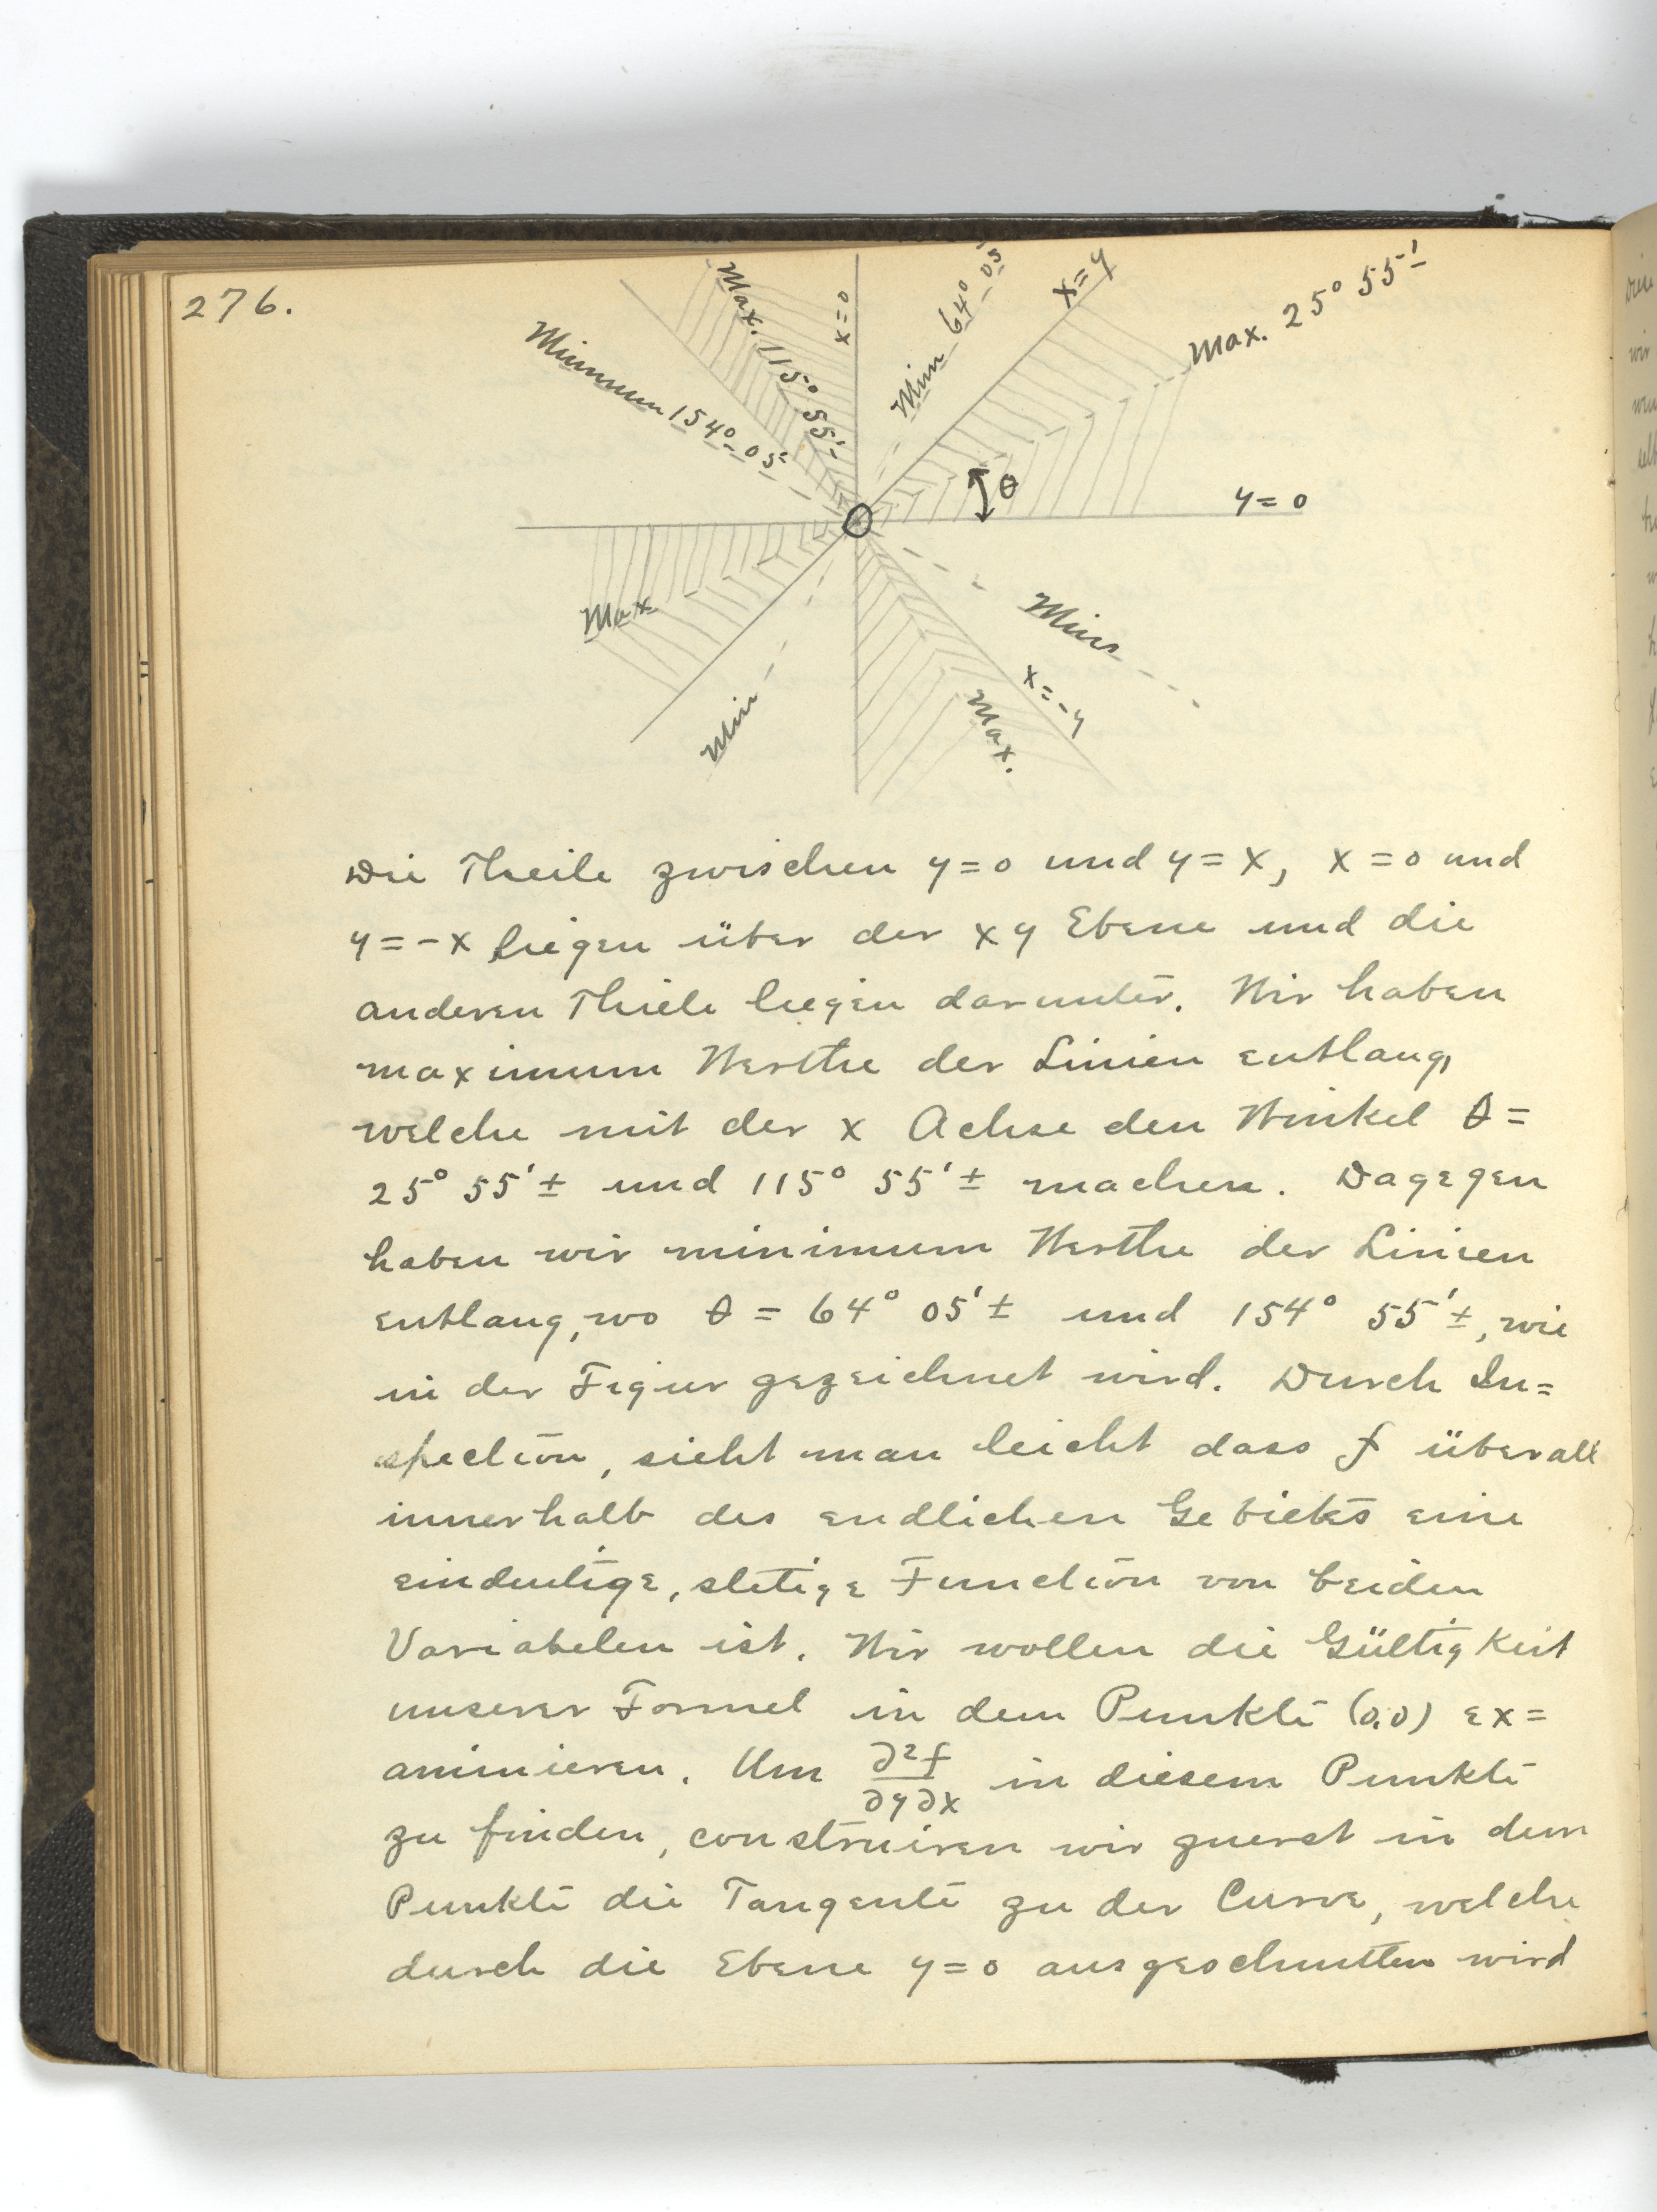 276.
Minimum 154° 05'
Max. 115° 55'
x = 0
Min 64° 05'
x = y
Max. 25° 55'
θ
y = 0
Max
Min
Min
x = -y
Max.
Die Theile zwischen y = 0 und y = x, x = 0 und
y = -x liegen über der xy Ebene und die
anderen Thiele liegen darunter. Wir haben
maximum Werthe der Linien entlang
welche mit der x Achse den Winkel θ =
25° 55' ± und 115° 55' ± machen. Dagegen
haben wir minimum Werthe der Linien
entlang, wo θ = 64° 05' ± und 154° 55' ±, wie
in der Figur gezeichnet wird. Durch In=
spection, sieht man leicht dass f überall
innerhalb des endlichen Gebiets eine
eindeutige, stetige Function von beiden
Variabelen ist. Wir wollen die Gültigkeit
unserer Formel in dem Punkte (0,0) ex=
aminieren. Um ∂²f/∂y∂x in diesem Punkte
zu finden, construiren wir zuerst in dem
Punkte die Tangente zu der Curve, welche
durch die Ebene y = 0 ausgeschnitten wird